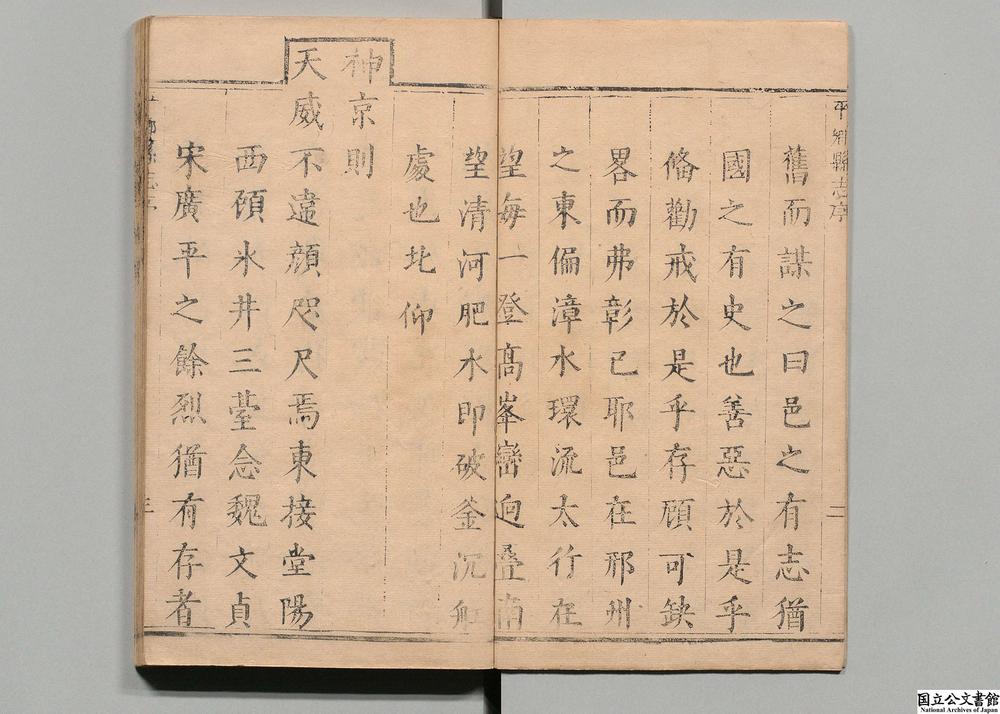 平鄉縣志序
二
舊而謀之曰邑之有志猶
國之有史也善惡於是乎
俻勸戒於是乎存顧可缺
畧而弗彰已耶邑在邢州
之東偏漳水環流太行在
望每一登高峯巒迥疊南
望清河肥水即破釜沉船
處也北仰
神京則
天威不違顔咫尺焉東接堂陽
西頋氷井三臺念魏文貞
宋廣平之餘烈猶有存者
三
国立公文書館
National Archives of Japan